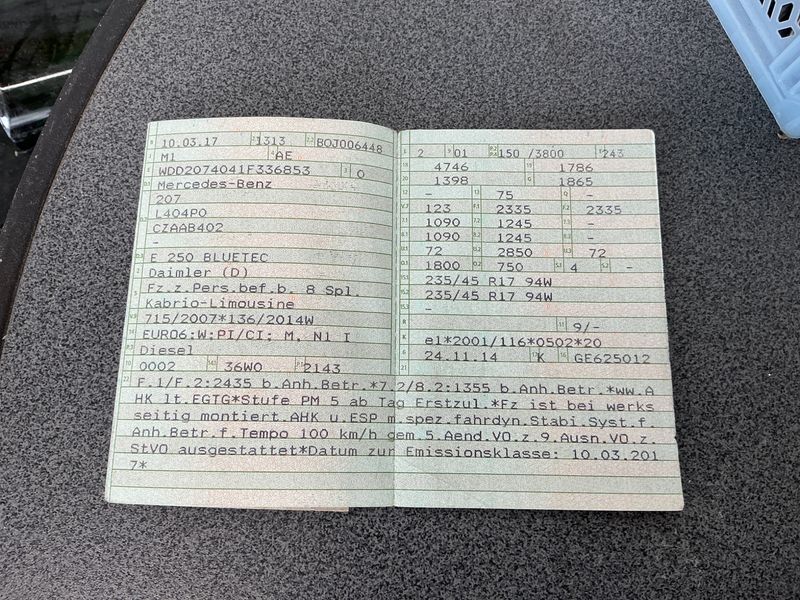 10.03.17 1313 BOJ006448
M1 AE
WDD2074041F336853 0
Mercedes-Benz
207
L404P0
CZAAB402
-
E 250 BLUETEC
Daimler (D)
Fz.z.Pers.bef.b. 8 Spl.
Kabrio-Limousine
715/2007*136/2014W
EURO6;W;PI/CI; M, N1 I
Diesel
0002 36W0 2143
2 01 150 /3800 243
4746 1786
1398 1865
- 75 -
123 2335 2335
1090 1245 -
1090 1245 -
72 2850 72
1800 750 4 -
235/45 R17 94W
235/45 R17 94W
-
9/-
e1*2001/116*0502*20
24.11.14 K GE625012
F.1/F.2:2435 b.Anh.Betr.*7.2/8.2:1355 b.Anh.Betr.*ww.A
HK lt.EGTG*Stufe PM 5 ab Tag Erstzul.*Fz ist bei werks
seitig montiert.AHK u.ESP m.spez.fahrdyn.Stabi.Syst.f.
Anh.Betr.f.Tempo 100 km/h gem.5.Aend.VO.z.9.Ausn.VO.z.
StVO ausgestattet*Datum zur Emissionsklasse: 10.03.201
7*